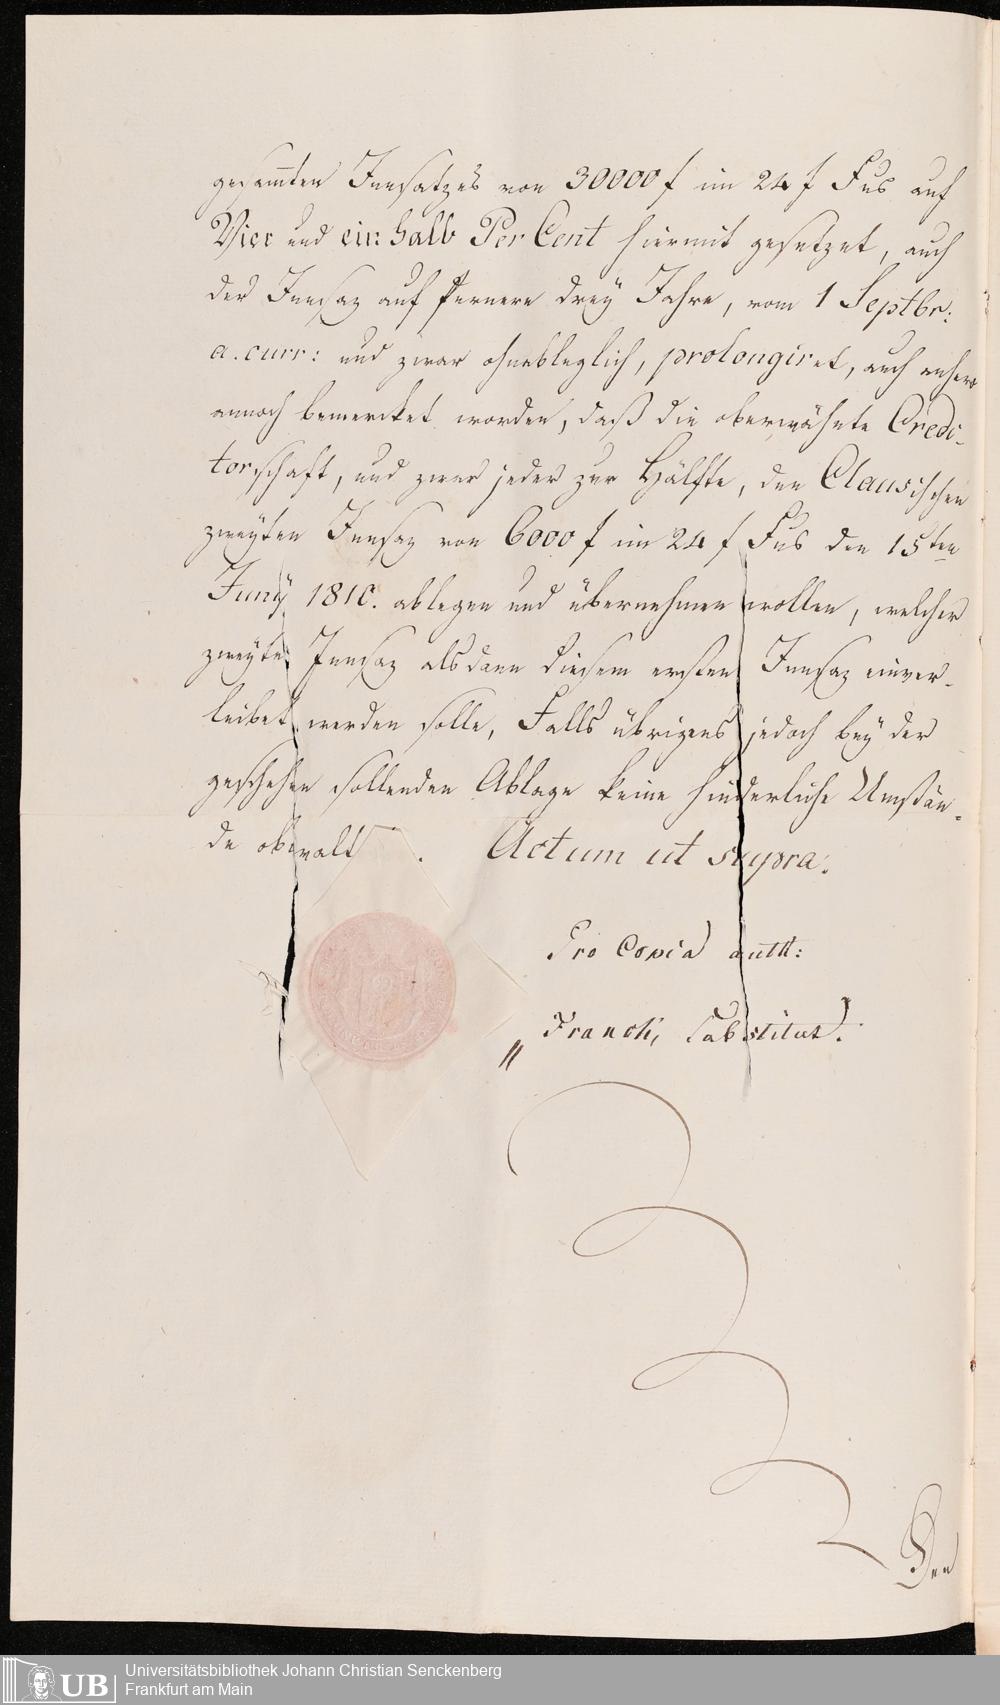 gesam̄ten Innsatzes von 30000 f im 24 f Fus auf
Vier und ein halb Per Cent hiermit gesetzet, auch
der Innsaz auf fernere drey Jahre, vom 1 Septbr:
a. curr: und zwar ohnableglich, prolongiret, auch anhero
annoch bemercket worden, daß die oberwähnte Credi-
torschaft, und zwar jeder zur Hälfte, den Clausischen
zweyten Innsaz von 6000 f im 24 f Fus den 15ten
Juny 1810. ablegen und übernehmen wollen, welcher
zweyte Innsaz alsdann diesem ersten Innsaz einver-
leibet werden solle, Falls übrigens jedoch bey der
geschehen sollenden Ablage keine hinderliche Umstän-
de obwalten. Actum ut supra.
Pro Copia auth:
Franck, Substitut.
Den
Universitätsbibliothek Johann Christian Senckenberg
Frankfurt am Main
UB